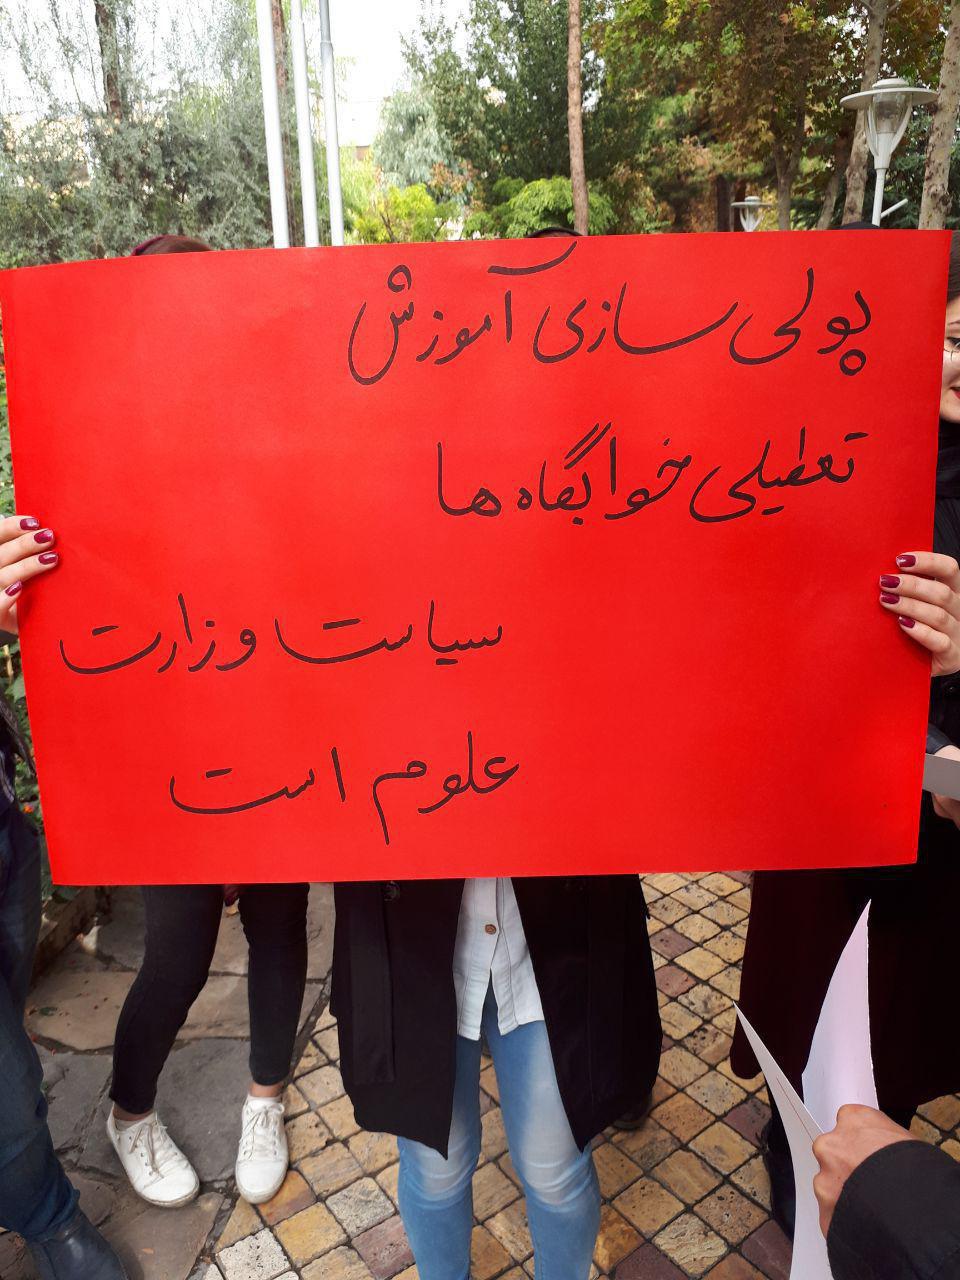 پولی سازی آموزش
تعطیلی خوابگاه ها
سیاست وزارت
علوم است